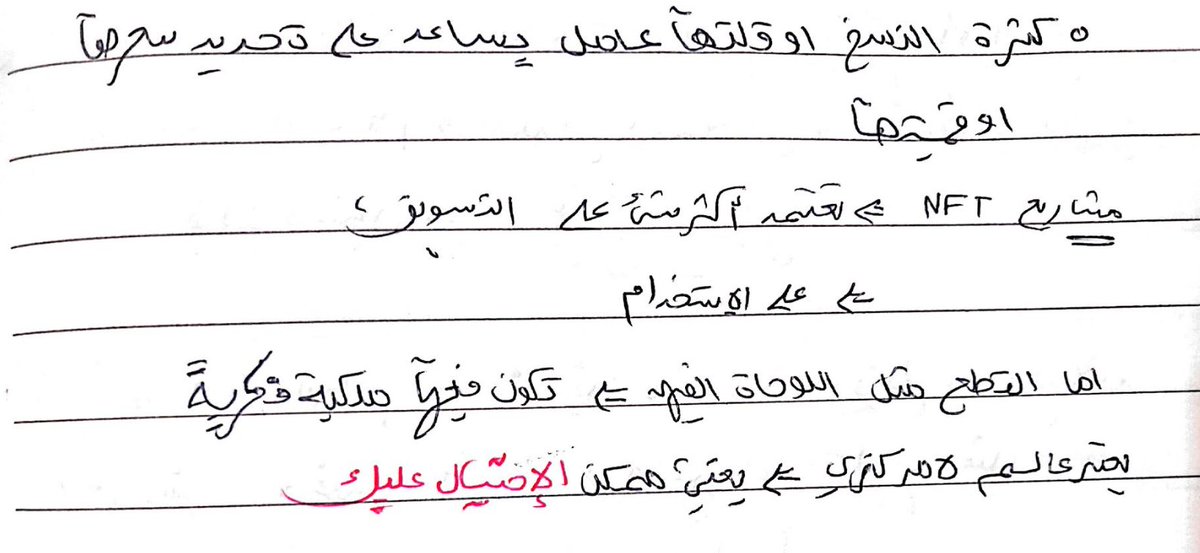 كثرة النسخ او قلتها عامل يساعد على تحديد سعرها
او قيتها
مشاريع NFT ⇐ تعتمد أكثر شئ على التسويق ،
⇐ على الاستخدام
اما القطع مثل اللوحاة الفنيه ⇐ تكون فيها ملكية فكريةً
يعتبر عالم لامركزي ⇐ يعني ممكن الإحتيال عليك